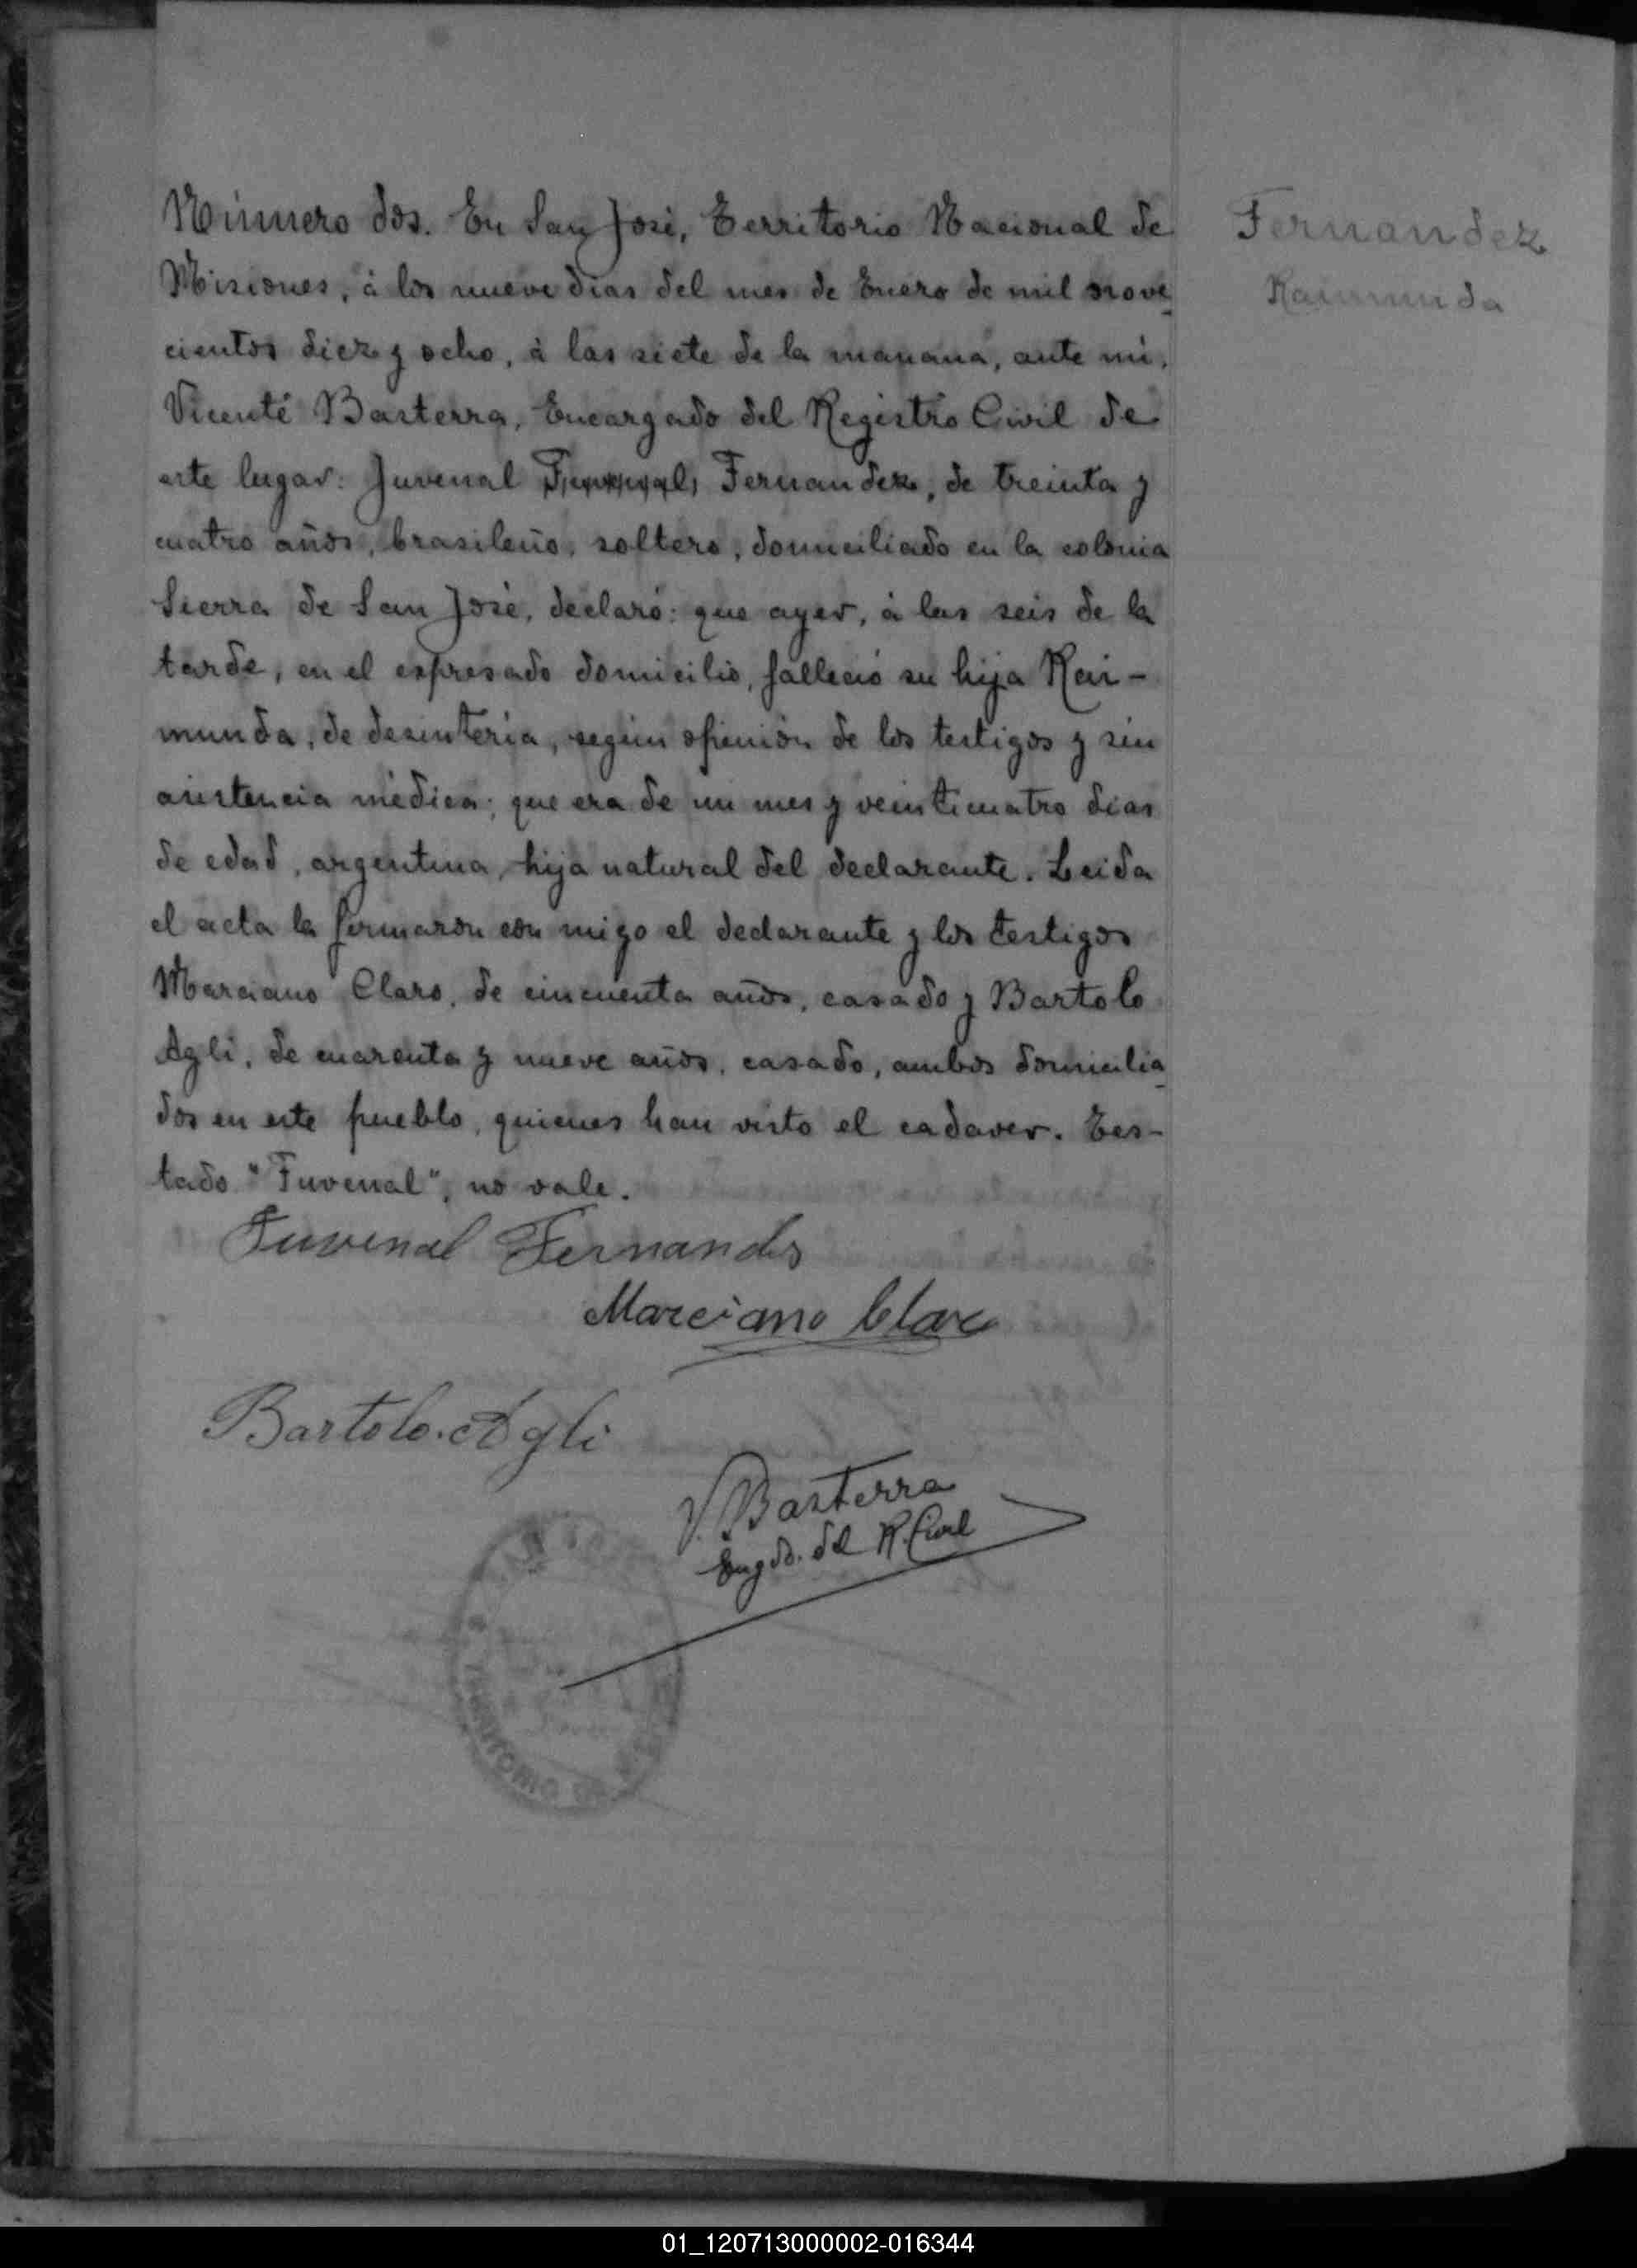 Número dos. En San José, Territorio Nacional de
Misiones, á los nueve dias del mes de Enero de mil nove
cientos diez y ocho, á las siete de la mañana, ante mí,
Vicente Basterra, Encargado del Registro Civil de
este lugar: Juvenal Juvenal Fernandez, de treinta y
cuatro años, brasileño, soltero, domiciliado en la colonia
Sierra de San José, declaró: que ayer, á las seis de la
tarde, en el espresado domicilio, falleció su hija Rai-
munda, de desinteria, según opinión de los testigos y sin
asistencia médica; que era de un mes y veinticuatro dias
de edad, argentina, hija natural del declarante. Leida
el acta la firmaron con migo el declarante y los testigos
Marciano Claro, de cincuenta años, casado y Bartolo
Agli, de cuarenta y nueve años, casado, ambos domicilia
dos en este pueblo, quienes han visto el cadaver. Tes-
tado "Juvenal", no vale.
Juvenal Fernandes
Marciano Claro
Bartolo Agli
V. Basterra
Engdo. del R. Civil
TERRITORIO DE
Fernandez
Raimunda
01_120713000002-016344